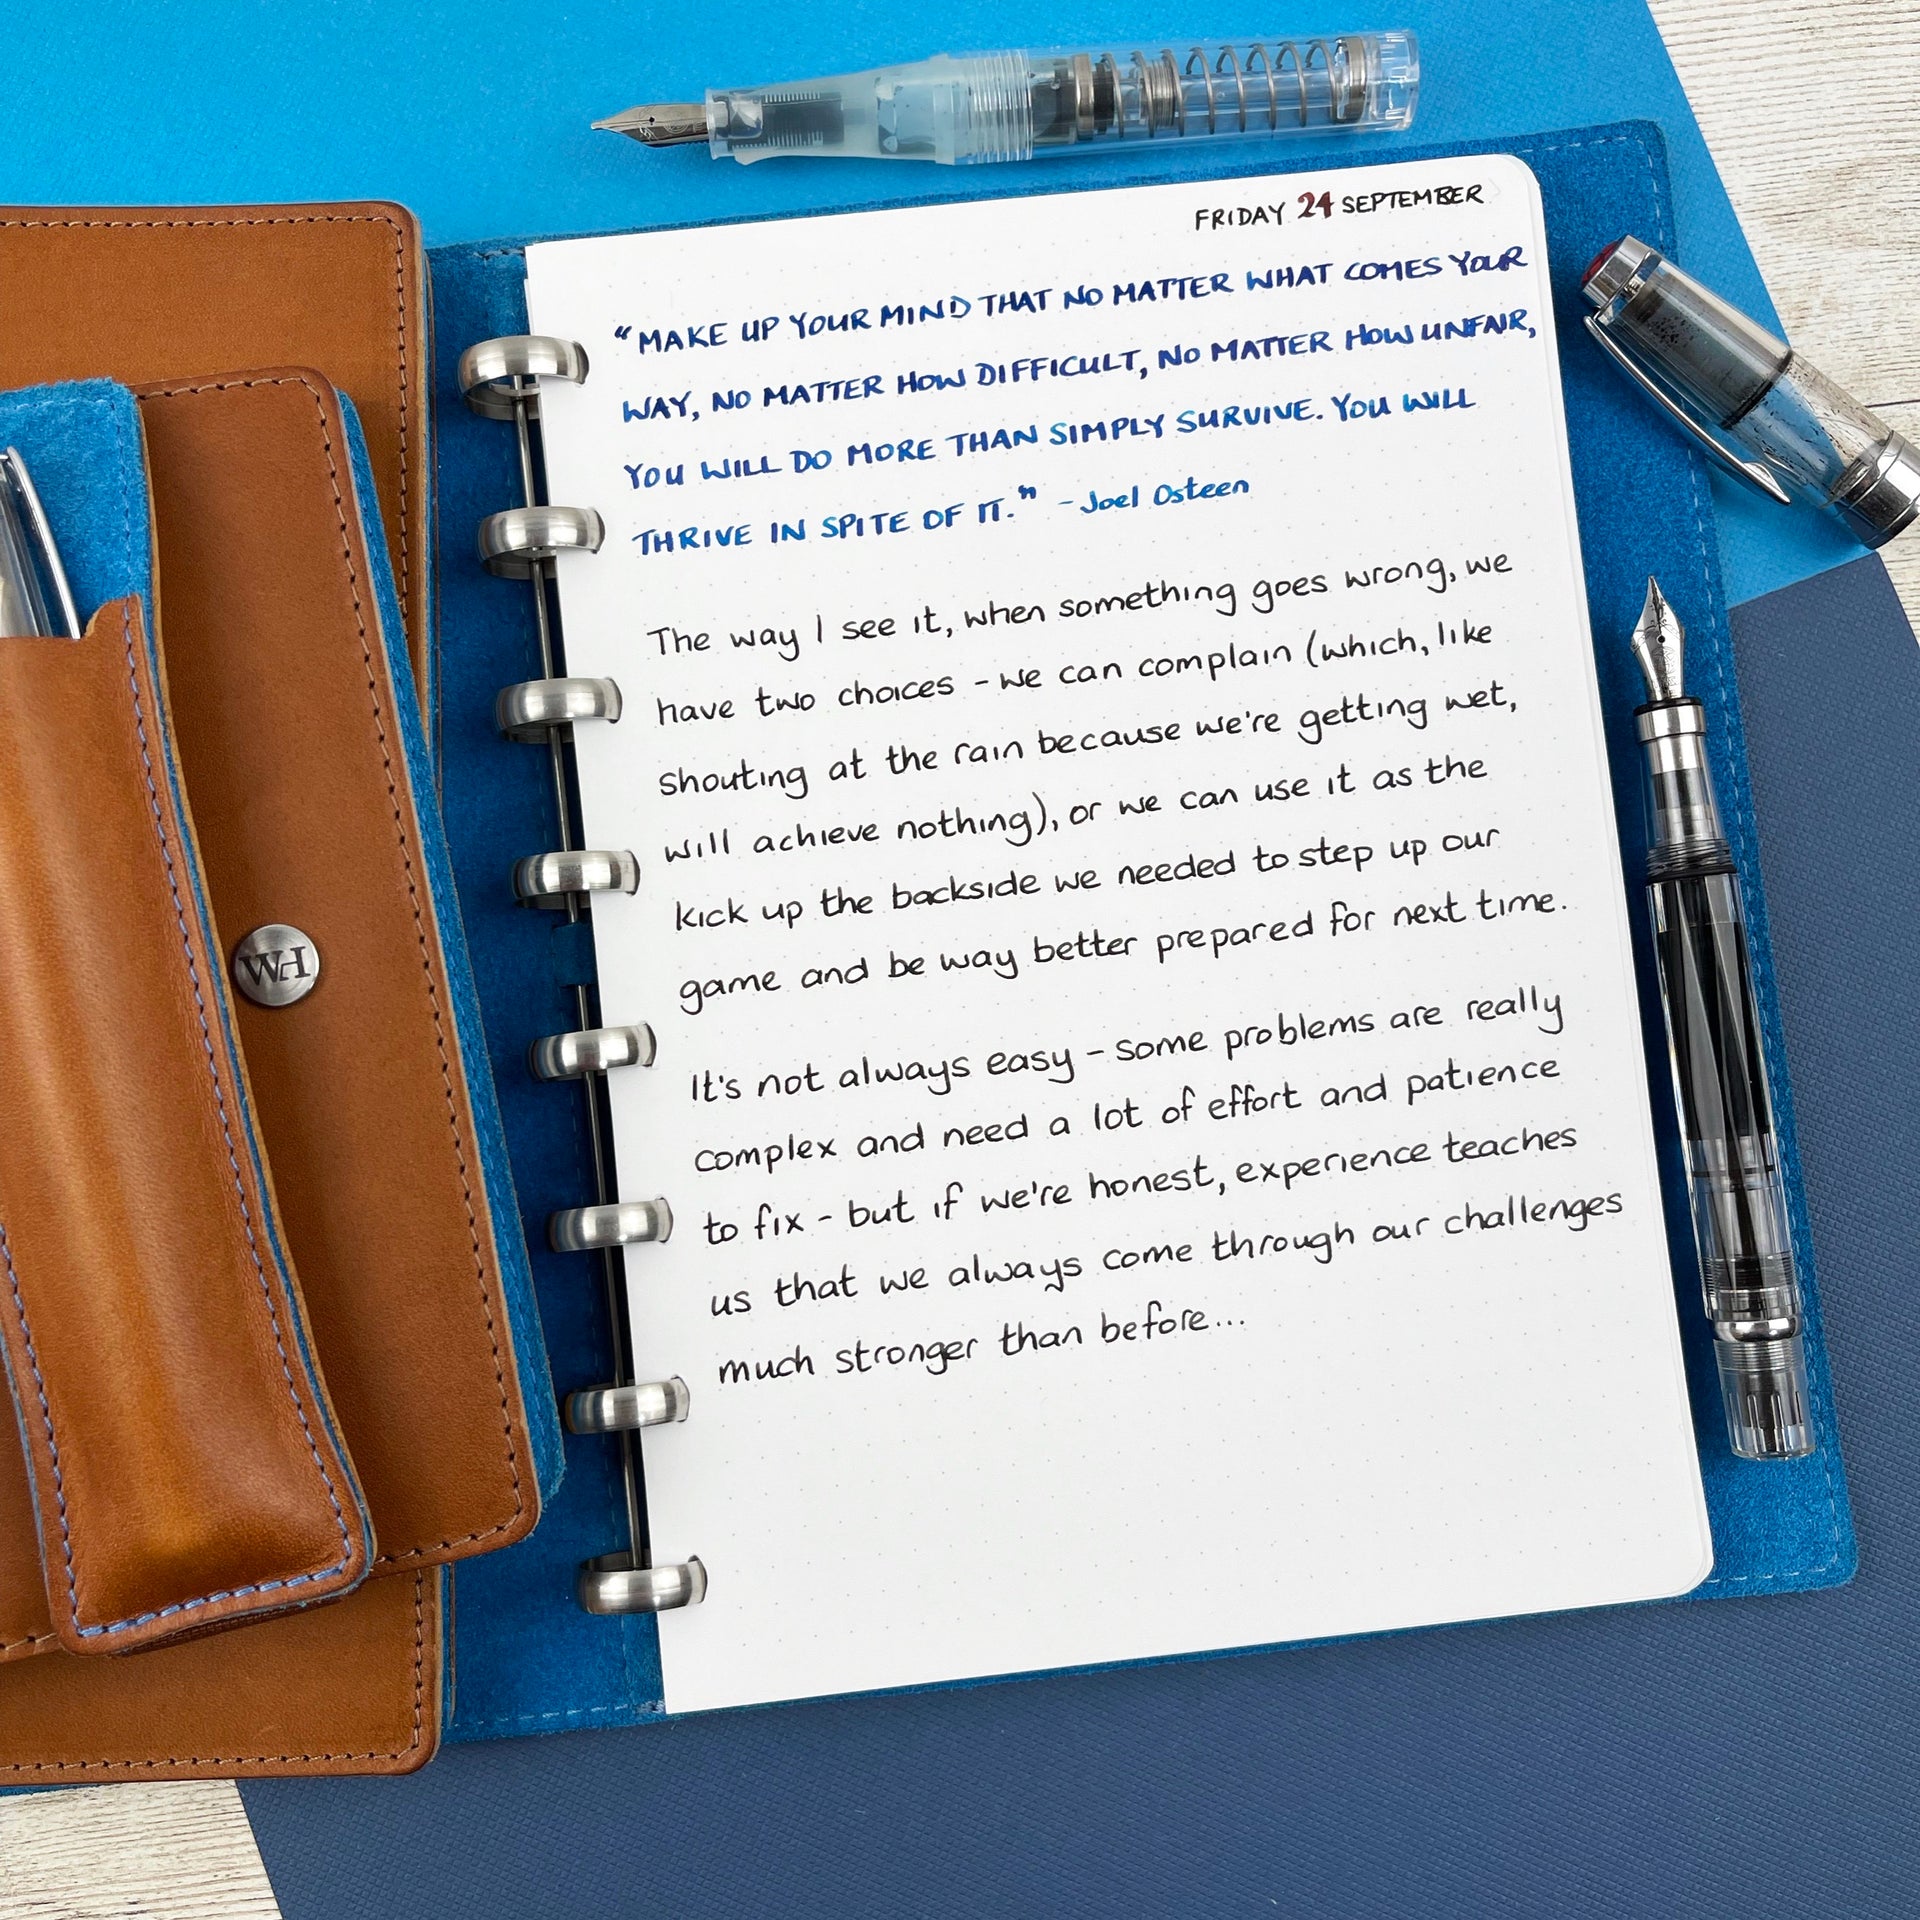 FRIDAY 24 SEPTEMBER
"MAKE UP YOUR MIND THAT NO MATTER WHAT COMES YOUR
WAY, NO MATTER HOW DIFFICULT, NO MATTER HOW UNFAIR,
YOU WILL DO MORE THAN SIMPLY SURVIVE. YOU WILL
THRIVE IN SPITE OF IT." - Joel Osteen
The way I see it, when something goes wrong, we
have two choices - we can complain (which, like
shouting at the rain because we're getting wet,
will achieve nothing), or we can use it as the
kick up the backside we needed to step up our
game and be way better prepared for next time.
It's not always easy - some problems are really
complex and need a lot of effort and patience
to fix - but if we're honest, experience teaches
us that we always come through our challenges
much stronger than before...
WH